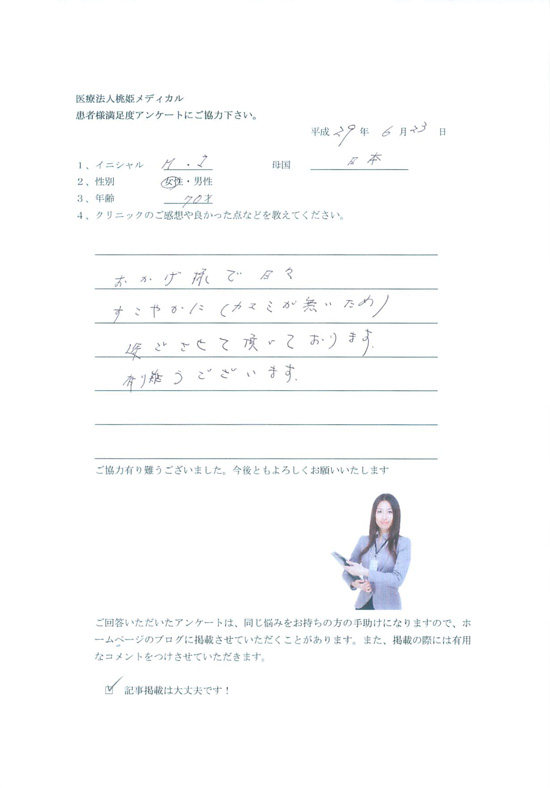 医療法人桃姫メディカル
患者様満足度アンケートにご協力下さい。
平成 29 年 6 月 23 日
1、イニシャル M・I 母国 日本
2、性別 女性・男性
3、年齢 70才
4、クリニックのご感想や良かった点などを教えてください。
おかげ様で日々
すこやかに(カユミが無いため)
過ごさせて頂いております.
有り難うございます.
ご協力有り難うございました。今後ともよろしくお願いいたします
ご回答いただいたアンケートは、同じ悩みをお持ちの方の手助けになりますので、ホ
ームページのブログに掲載させていただくことがあります。また、掲載の際には有用
なコメントをつけさせていただきます。
☑ 記事掲載は大丈夫です！